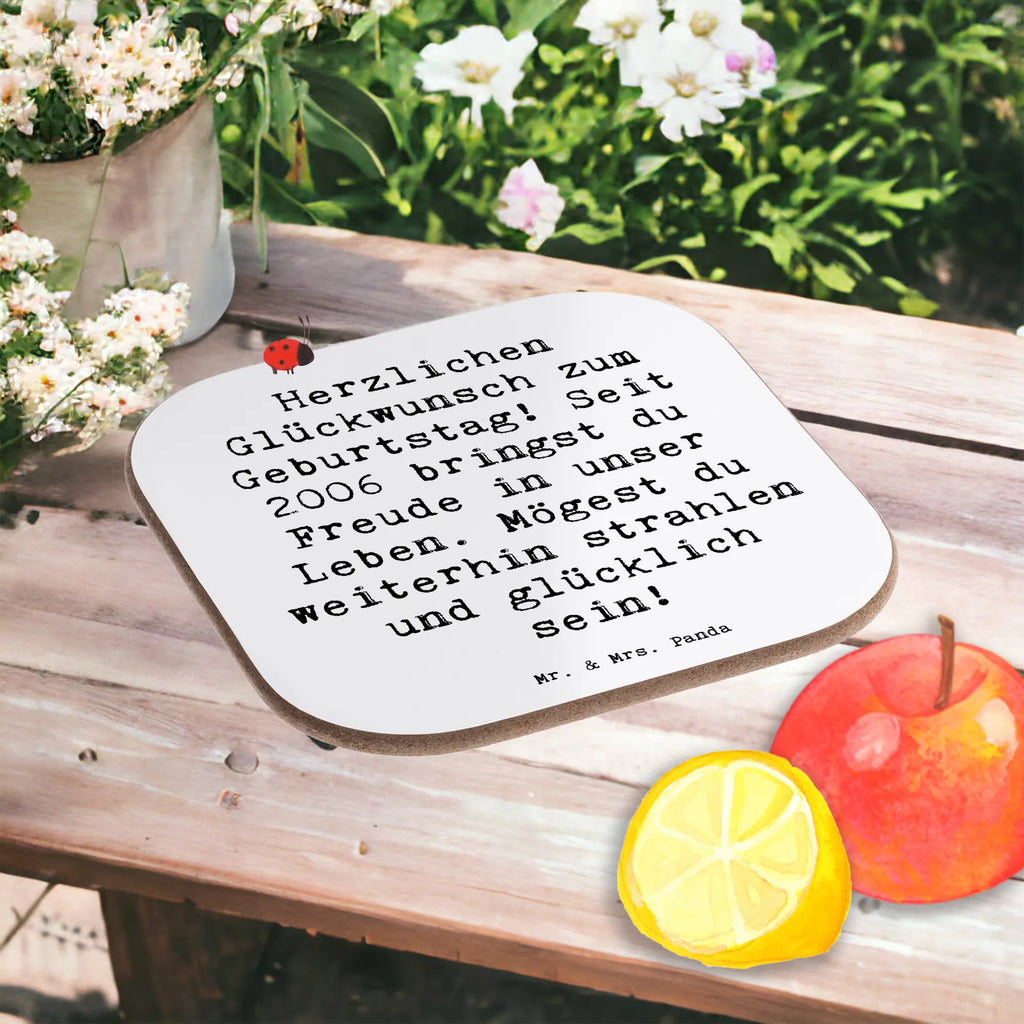 Herzlichen
Glückwunsch zum
Geburtstag! Seit
2006 bringst du
Freude in unser
Leben. Mögest du
weiterhin strahlen
und glücklich
sein!
Mr. & Mrs. Panda